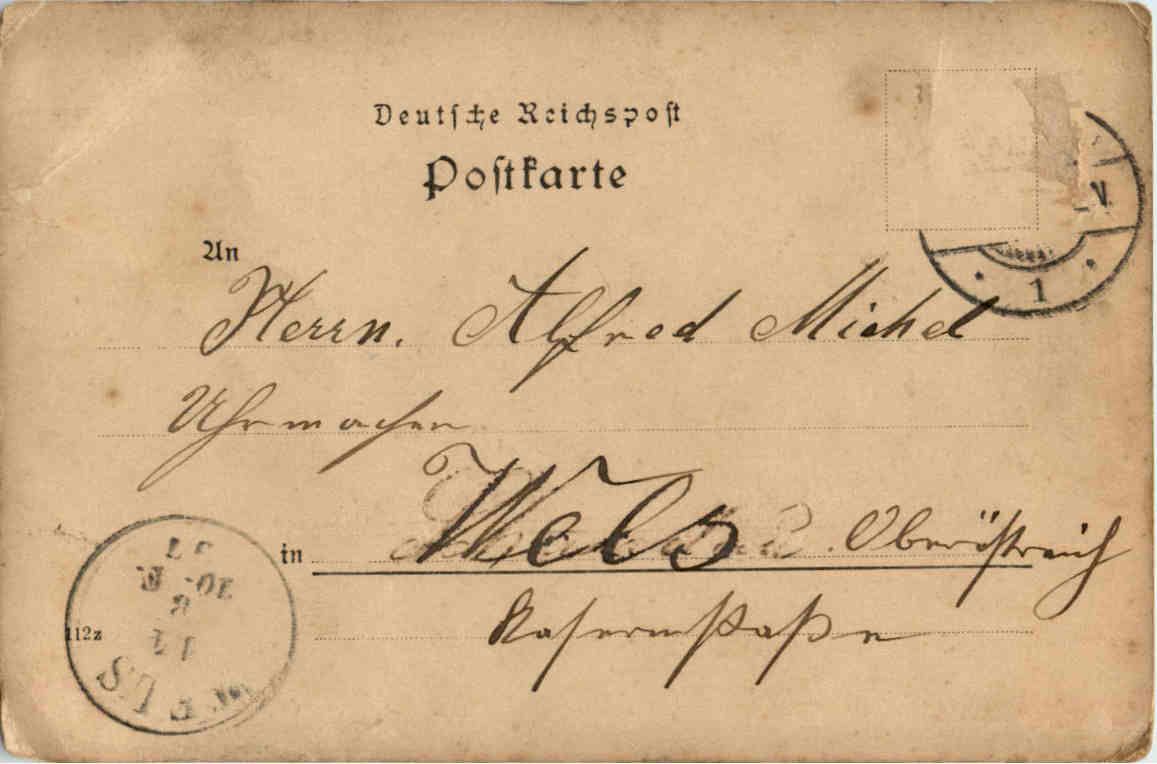 Deutsche Reichspost
Postkarte
An
Herrn. Alfred Michel
Uhrmacher
in Wels. Oberöstreich
Kasernstraße
112z
WELS
1